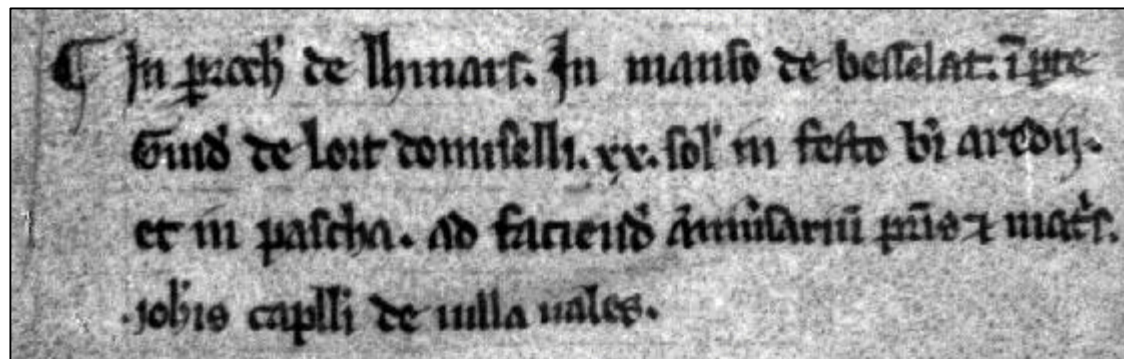 ¶ In ꝑroch̾ de lhinars. In manso de besselat. ī ꝑte
Guid̾ de lort domiselli. xx. sol̾ in festo bī aredij.
et in pascha. ad faciend̾ āniūsariū pr̄is ⁊ mat̾s.
joh̾is capłłi de uilla uales.